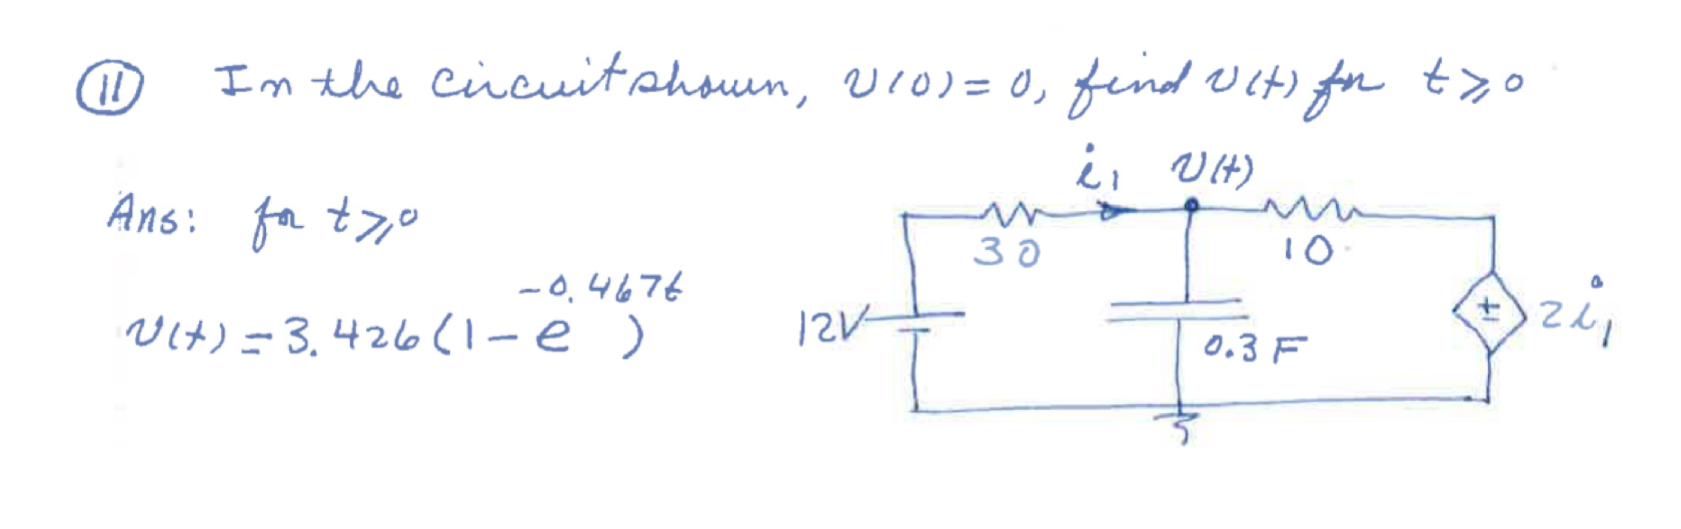 ⑪ In the circuit shown, v(0) = 0, find v(t) for t ≥ 0
i₁ v(t)
Ans: for t ≥ 0
30 10
-0.467t
v(t) = 3.426(1 - e )
12V + 
- 2i₁
0.3 F